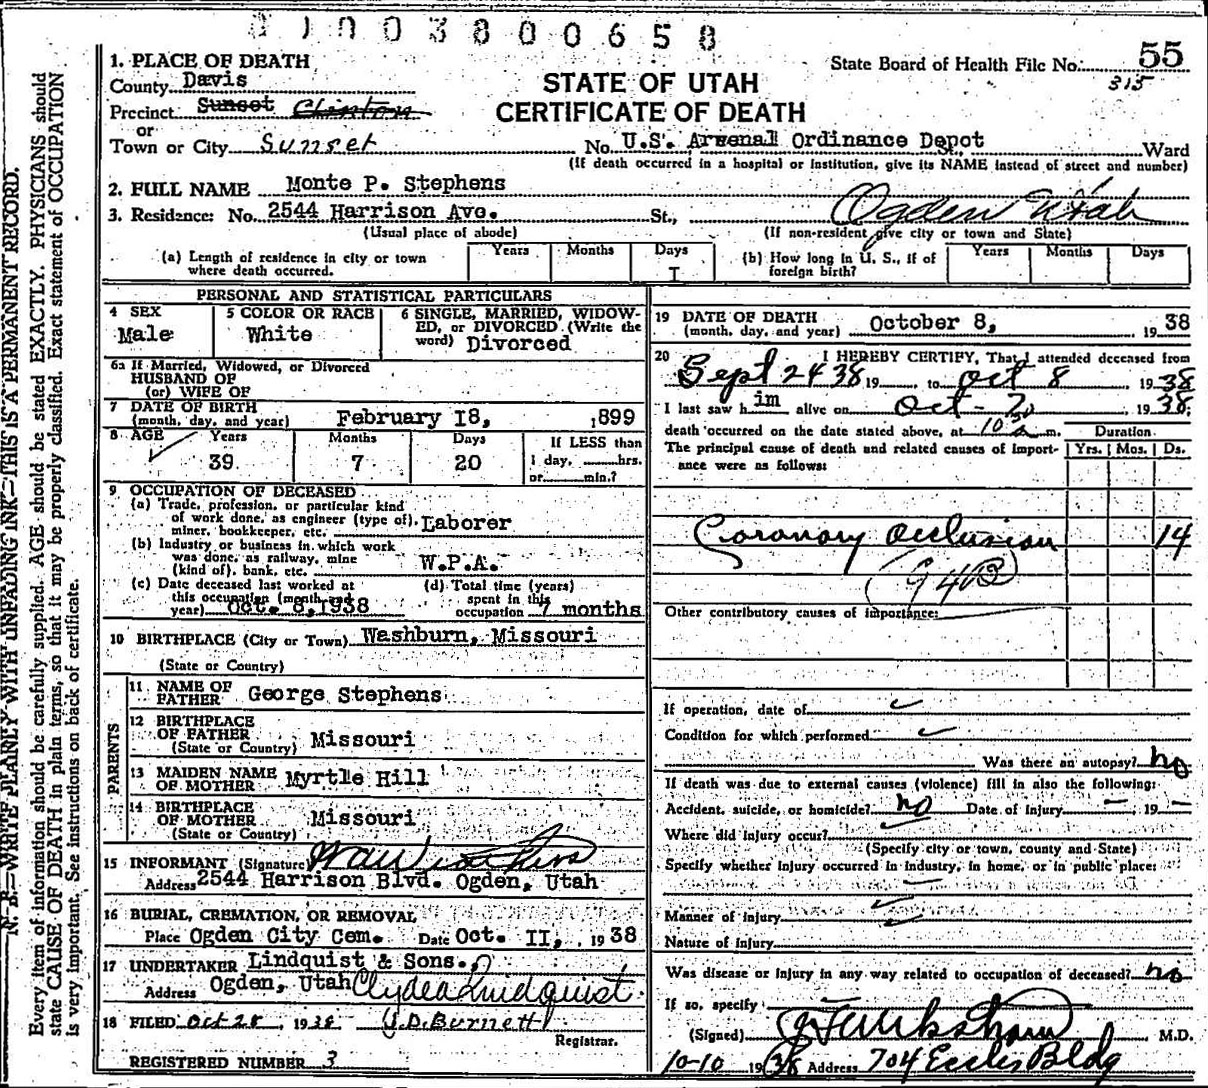 1003800658
1. PLACE OF DEATH
County Davis
Precinct Sunset Clinton
or
Town or City Sunset
STATE OF UTAH
CERTIFICATE OF DEATH
State Board of Health File No. 55
315
No. U.S. Arsenal Ordinance Depot St., Ward
(If death occurred in a hospital or institution, give its NAME instead of street and number)
2. FULL NAME Monte P. Stephens
3. Residence: No. 2544 Harrison Ave. St., Ogden Utah
(Usual place of abode) (If non-resident give city or town and State)
(a) Length of residence in city or town where death occurred. Years Months Days I
(b) How long in U. S., if of foreign birth? Years Months Days
PERSONAL AND STATISTICAL PARTICULARS
4 SEX Male
5 COLOR OR RACE White
6 SINGLE, MARRIED, WIDOWED, or DIVORCED (Write the word) Divorced
6a If Married, Widowed, or Divorced
HUSBAND OF
(or) WIFE OF
7 DATE OF BIRTH
(month, day, and year) February I8, 1899
8 AGE Years Months Days If LESS than
39 7 20 1 day, hrs.
or min.?
9 OCCUPATION OF DECEASED
(a) Trade, profession, or particular kind
of work done, as engineer (type of),
miner, bookkeeper, etc. Laborer
(b) Industry or business in which work
was done, as railway, mine
(kind of), bank, etc. W.P.A.
(c) Date deceased last worked at
this occupation (month and
year) Oct. 8, 1938
(d) Total time (years)
spent in this
occupation 7 months
10 BIRTHPLACE (City or Town) Washburn, Missouri
(State or Country)
PARENTS
11 NAME OF FATHER George Stephens
12 BIRTHPLACE OF FATHER
(State or Country) Missouri
13 MAIDEN NAME OF MOTHER Myrtle Hill
14 BIRTHPLACE OF MOTHER
(State or Country) Missouri
15 INFORMANT (Signature)
Address 2544 Harrison Blvd. Ogden, Utah
16 BURIAL, CREMATION, OR REMOVAL
Place Ogden City Cem. Date Oct. II, 1938
17 UNDERTAKER Lindquist & Sons.
Address Ogden, Utah Clyde Lindquist
18 FILED Oct 28, 1938 J.D. Burnett
Registrar.
REGISTERED NUMBER 3
19 DATE OF DEATH
(month, day, and year) October 8, 1938
20 I HEREBY CERTIFY, That I attended deceased from
Sept 24 38 19 to Oct 8 1938
I last saw him alive on Oct - 7 1938;
death occurred on the date stated above, at 10 a m.
The principal cause of death and related causes of importance were as follows:
Duration
Yrs. Mos. Ds.
Coronary Occlusion 14
Other contributory causes of importance:
If operation, date of
Condition for which performed
Was there an autopsy? no
If death was due to external causes (violence) fill in also the following:
Accident, suicide, or homicide? no Date of injury — 19 —
Where did injury occur?
(Specify city or town, county and State)
Specify whether injury occurred in industry, in home, or in public place:
Manner of injury
Nature of injury
Was disease or injury in any way related to occupation of deceased? no
If so, specify
(Signed) M.D.
10-10 1938 Address 704 Eccles Bldg
N. B.—WRITE PLAINLY WITH UNFADING INK—THIS IS A PERMANENT RECORD.
Every item of information should be carefully supplied. AGE should be stated EXACTLY. PHYSICIANS should
state CAUSE OF DEATH in plain terms, so that it may be properly classified. Exact statement of OCCUPATION
is very important. See instructions on back of certificate.